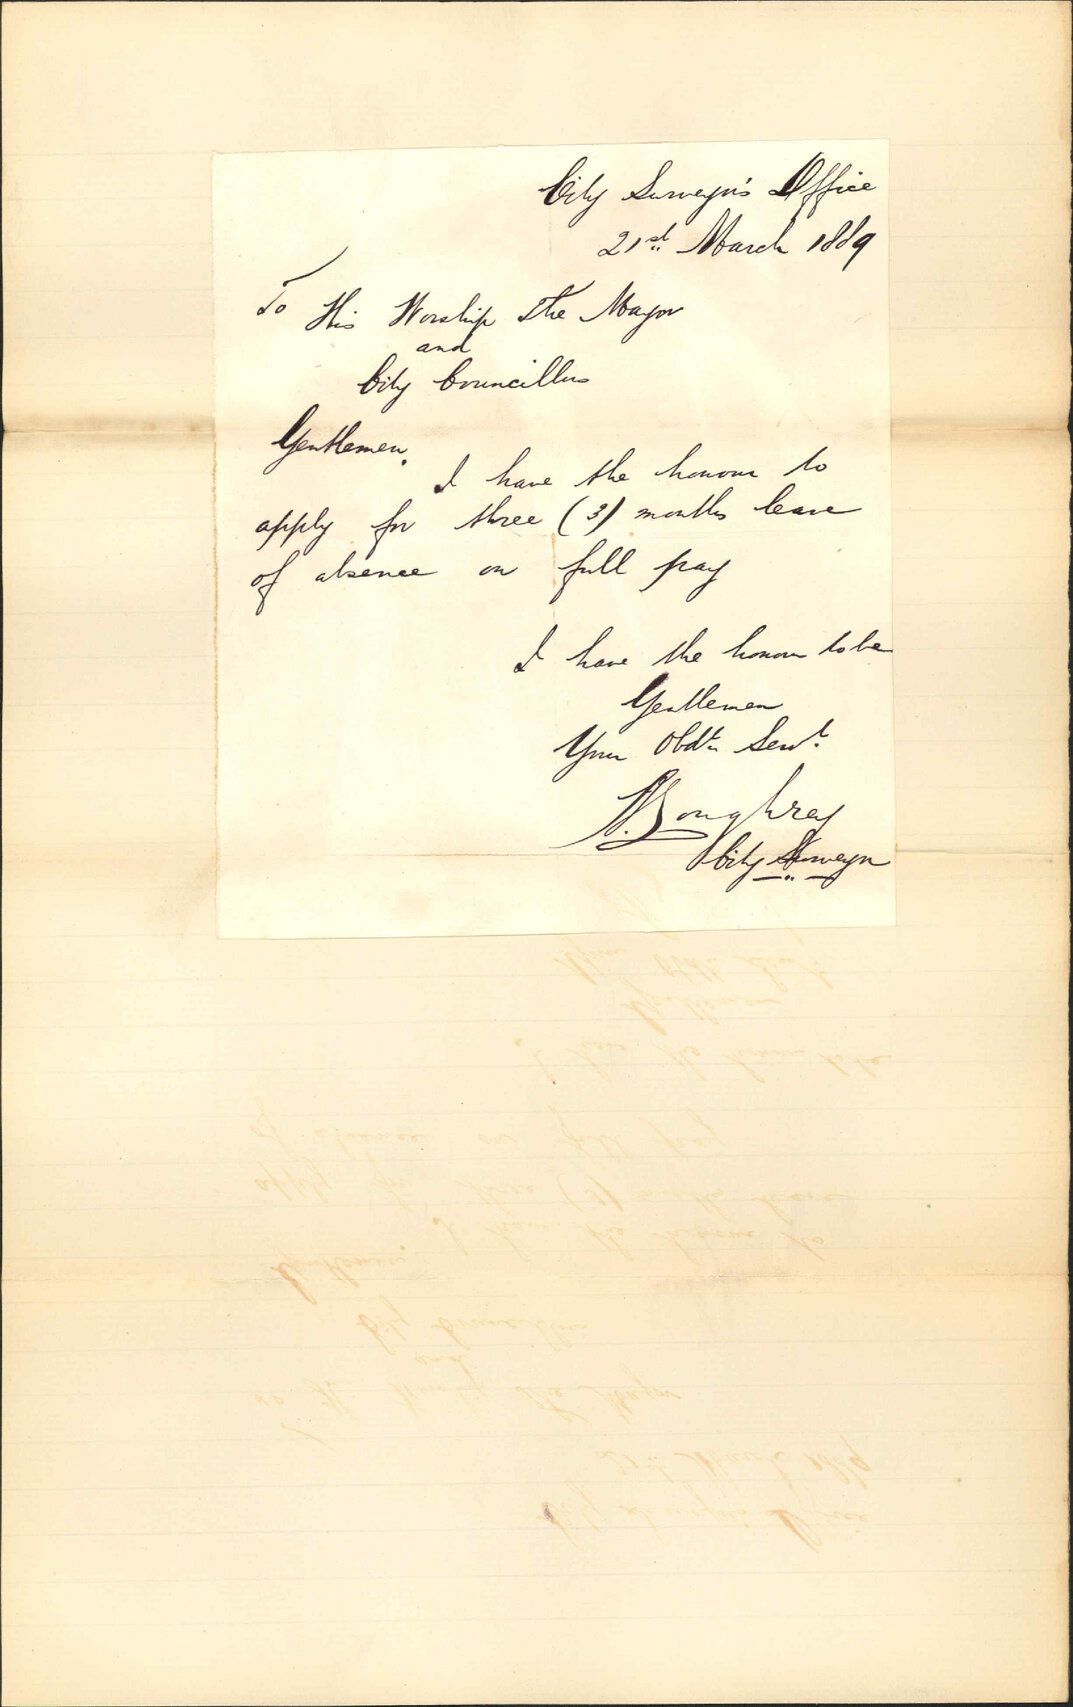 City Surveyor's Office
21st March 1889
To His Worship The Mayor
and
City Councillors
Gentlemen.
I have the honour to
apply for three (3) months leave
of absence on full pay
I have the honour to be
Gentlemen
Your Obdt. Servt.
J. Loughrey
City Surveyor